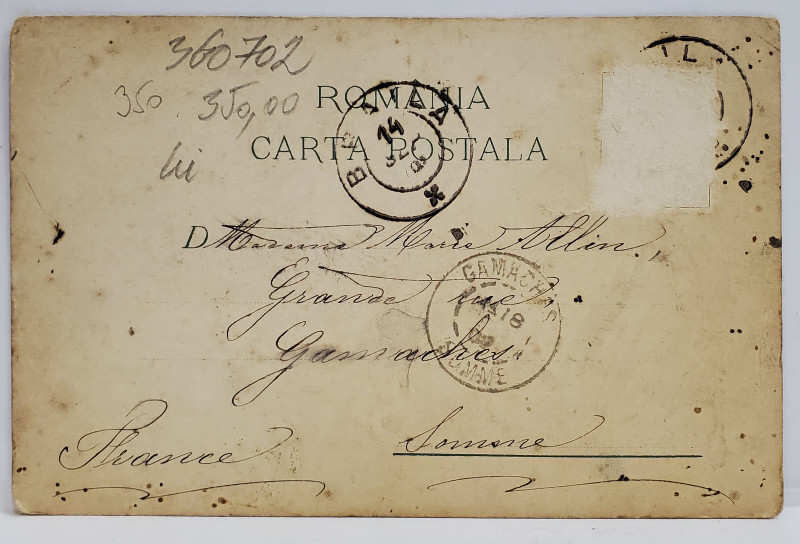 360702
350 350,00
lei
ROMANIA
CARTA POSTALA
BRAILA
14
IL
D Madame Marie Allin,
Grande rue
Gamaches
GAMACHES
18
SOMME
France Somme